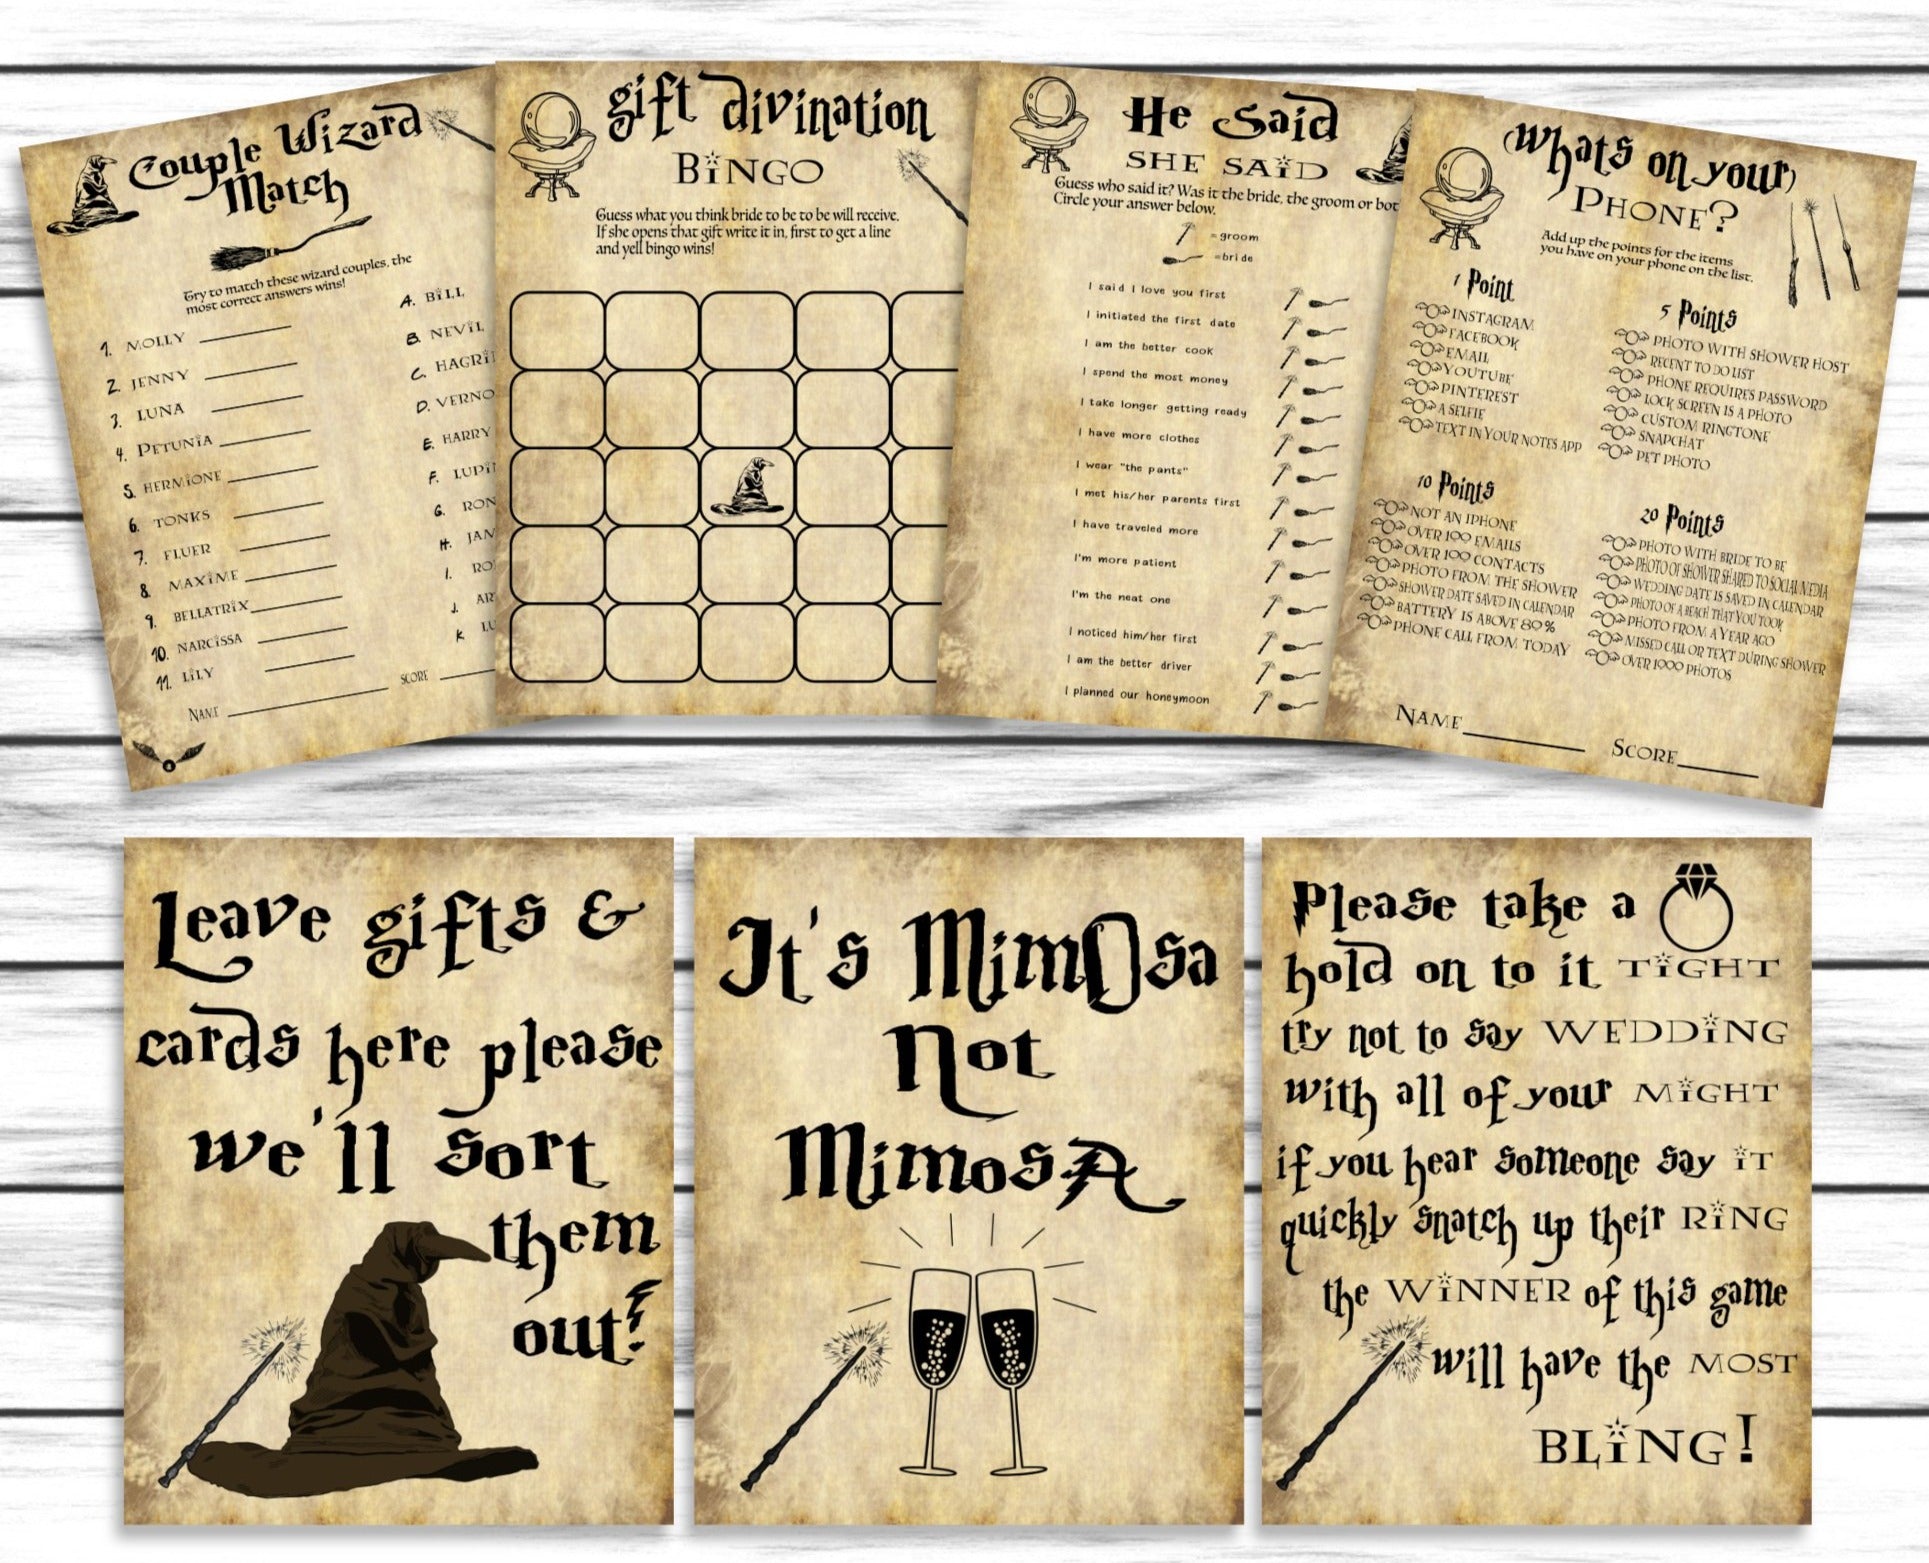 Couple Wizard
Match
Try to match these wizard couples, the
most correct answers wins!
1. MOLLY
2. JENNY
3. LUNA
4. PETUNIA
5. HERMIONE
6. TONKS
7. FLUER
8. MAXIME
9. BELLATRIX
10. NARCISSA
11. LILY
A. BILL
B. NEVIL
C. HAGRI
D. VERNO
E. HARRY
F. LUPI
G. RON
H. JAN
I. RO
J. AR
K. LU
NAME SCORE
gift divination
BINGO
Guess what you think bride to be to be will receive.
If she opens that gift write it in, first to get a line
and yell bingo wins!
He Said
SHE SAID
Guess who said it? Was it the bride, the groom or bot
Circle your answer below.
=groom
=bride
I said I love you first
I initiated the first date
I am the better cook
I spend the most money
I take longer getting ready
I have more clothes
I wear "the pants"
I met his/her parents first
I have traveled more
I'm more patient
I'm the neat one
I noticed him/her first
I am the better driver
I planned our honeymoon
Whats on your
PHONE?
Add up the points for the items
you have on your phone on the list.
1 Point
INSTAGRAM
FACEBOOK
EMAIL
YOUTUBE
PINTEREST
A SELFIE
TEXT IN YOUR NOTES APP
5 Points
PHOTO WITH SHOWER HOST
RECENT TO DO LIST
PHONE REQUIRES PASSWORD
LOCK SCREEN IS A PHOTO
CUSTOM RINGTONE
SNAPCHAT
PET PHOTO
10 Points
NOT AN IPHONE
OVER 100 EMAILS
OVER 100 CONTACTS
PHOTO FROM THE SHOWER
SHOWER DATE SAVED IN CALENDAR
BATTERY IS ABOVE 80%
PHONE CALL FROM TODAY
20 Points
PHOTO WITH BRIDE TO BE
PHOTO OF SHOWER SHARED TO SOCIAL MEDIA
WEDDING DATE IS SAVED IN CALENDAR
PHOTO OF A BEACH THAT YOU TOOK
PHOTO FROM A YEAR AGO
MISSED CALL OR TEXT DURING SHOWER
OVER 1000 PHOTOS
NAME
SCORE
Leave gifts &
cards here please
we'll sort
them
out!
It's MimOsa
Not
MimosA
Please take a
hold on to it TIGHT
try not to say WEDDING
with all of your MIGHT
if you hear someone say IT
quickly snatch up their RING
the WINNER of this game
will have the MOST
BLING!